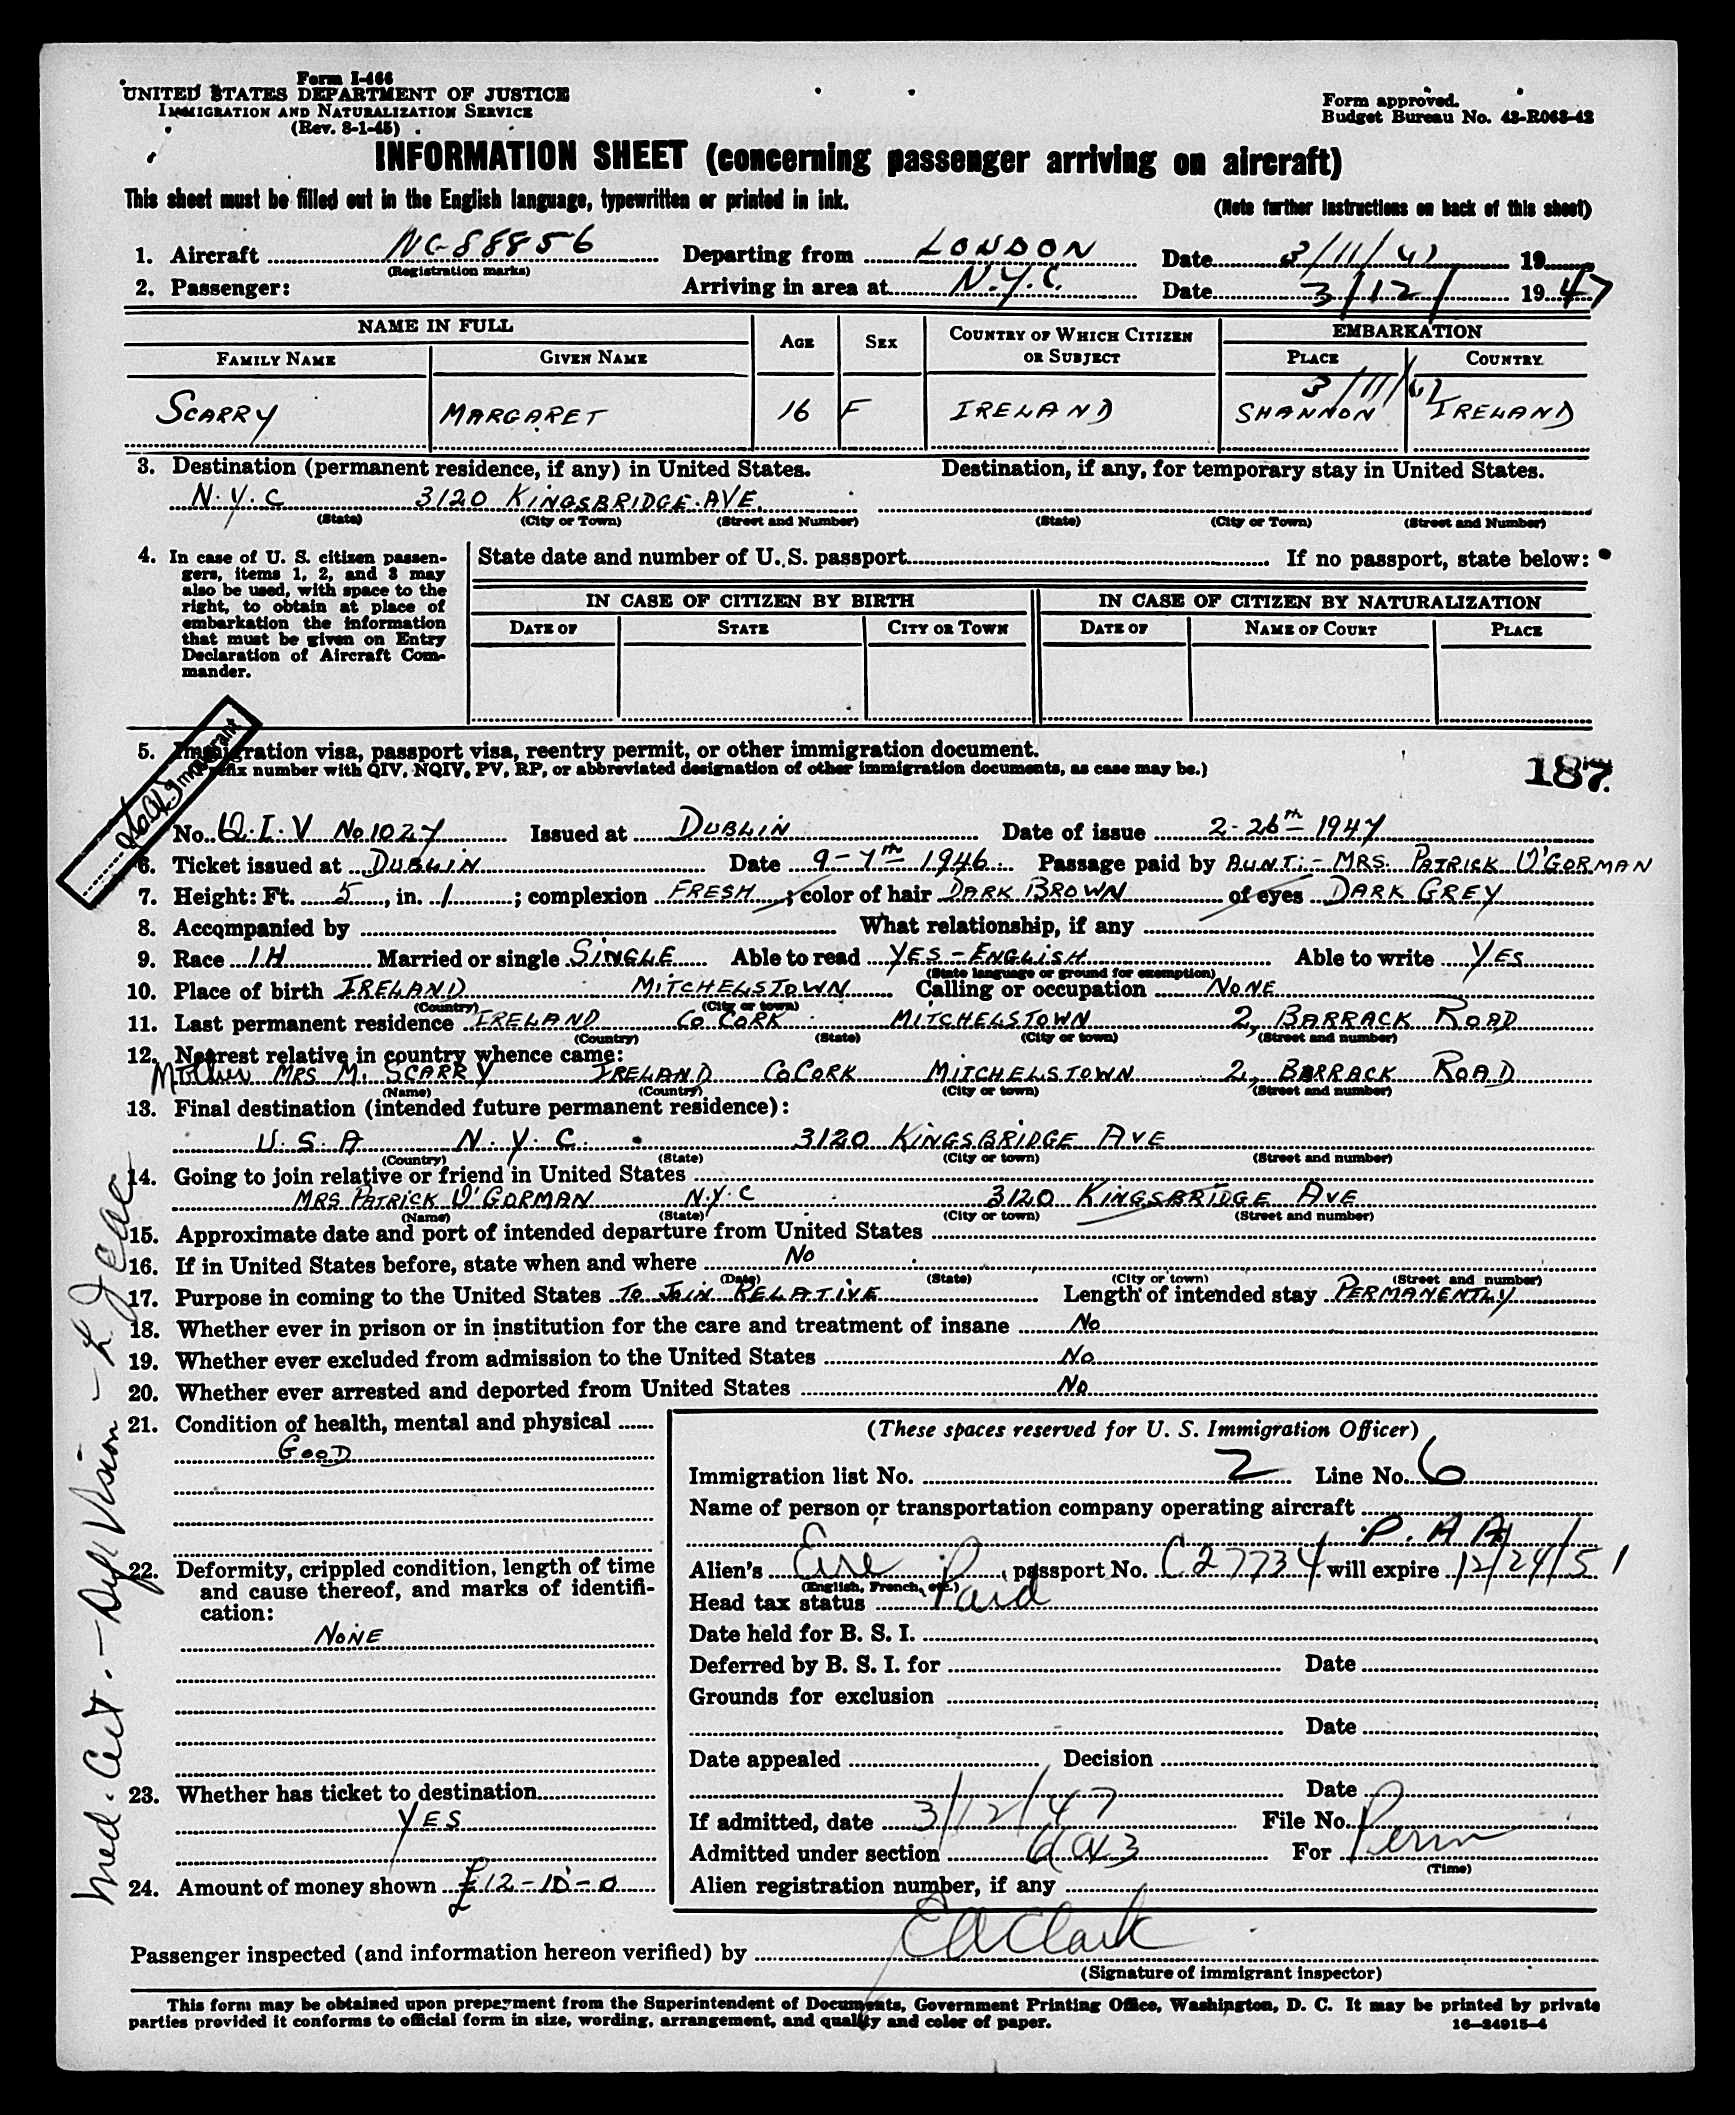 Form I-466
UNITED STATES DEPARTMENT OF JUSTICE
IMMIGRATION AND NATURALIZATION SERVICE
(Rev. 8-1-45)
Form approved.
Budget Bureau No. 43-R063-42
INFORMATION SHEET (concerning passenger arriving on aircraft)
This sheet must be filled out in the English language, typewritten or printed in ink.
(Note further instructions on back of this sheet)
1. Aircraft NC 88856 Departing from LONDON Date 3/11/47 19
(Registration marks)
2. Passenger: Arriving in area at N.Y.C. Date 3/12/ 1947
NAME IN FULL AGE SEX COUNTRY OF WHICH CITIZEN OR SUBJECT EMBARKATION
FAMILY NAME GIVEN NAME PLACE COUNTRY
3/11/47
SCARRY MARGARET 16 F IRELAND SHANNON IRELAND
3. Destination (permanent residence, if any) in United States. Destination, if any, for temporary stay in United States.
N.Y.C 3120 KINGSBRIDGE AVE.
(State) (City or Town) (Street and Number) (State) (City or Town) (Street and Number)
4. In case of U. S. citizen passengers, items 1, 2, and 3 may also be used, with space to the right, to obtain at place of embarkation the information that must be given on Entry Declaration of Aircraft Commander.
State date and number of U. S. passport If no passport, state below:
IN CASE OF CITIZEN BY BIRTH IN CASE OF CITIZEN BY NATURALIZATION
DATE OF STATE CITY OR TOWN DATE OF NAME OF COURT PLACE
5. Immigration visa, passport visa, reentry permit, or other immigration document.
(Prefix number with QIV, NQIV, PV, RP, or abbreviated designation of other immigration documents, as case may be.)
187
Immigrant
No. Q.I.V No 1027 Issued at DUBLIN Date of issue 2-26th 1947
6. Ticket issued at DUBLIN Date 9-7th 1946 Passage paid by AUNT:- MRS. PATRICK O'GORMAN
7. Height: Ft. 5, in. 1; complexion FRESH; color of hair DARK BROWN of eyes DARK GREY
8. Accompanied by What relationship, if any
9. Race IH Married or single SINGLE Able to read YES - ENGLISH Able to write YES
(State language or ground for exemption)
10. Place of birth IRELAND MITCHELSTOWN Calling or occupation NONE
(Country) (City or town)
11. Last permanent residence IRELAND CO CORK MITCHELSTOWN 2, BARRACK ROAD
(Country) (State) (City or town) (Street and number)
12. Nearest relative in country whence came:
Mother MRS M. SCARRY IRELAND CO CORK MITCHELSTOWN 2, BARRACK ROAD
(Name) (Country) (City or town) (Street and number)
13. Final destination (intended future permanent residence):
U.S.A N.Y.C. 3120 KINGSBRIDGE AVE
(Country) (State) (City or town) (Street and number)
14. Going to join relative or friend in United States
MRS PATRICK O'GORMAN N.Y.C 3120 KINGSBRIDGE AVE
(Name) (State) (City or town) (Street and number)
15. Approximate date and port of intended departure from United States
16. If in United States before, state when and where No
(Date) (State) (City or town) (Street and number)
17. Purpose in coming to the United States TO JOIN RELATIVE Length of intended stay PERMANENTLY
18. Whether ever in prison or in institution for the care and treatment of insane No
19. Whether ever excluded from admission to the United States No
20. Whether ever arrested and deported from United States No
21. Condition of health, mental and physical
GOOD
22. Deformity, crippled condition, length of time and cause thereof, and marks of identification:
NONE
23. Whether has ticket to destination
YES
24. Amount of money shown £12-10-0
(These spaces reserved for U. S. Immigration Officer)
Immigration list No. 2 Line No. 6
Name of person or transportation company operating aircraft
P.A.A
Alien's Eire P, passport No. C27734 will expire 12/24/51
(English, French, etc.)
Head tax status Paid
Date held for B. S. I.
Deferred by B. S. I. for Date
Grounds for exclusion
Date
Date appealed Decision
Date
If admitted, date 3/12/47 File No.
Admitted under section 6a3 For Perm
(Time)
Alien registration number, if any
Med. Cert. - Def Vision -
Passenger inspected (and information hereon verified) by EA Clark
(Signature of immigrant inspector)
This form may be obtained upon prepayment from the Superintendent of Documents, Government Printing Office, Washington, D. C. It may be printed by private
parties provided it conforms to official form in size, wording, arrangement, and quality and color of paper.
16-24915-4